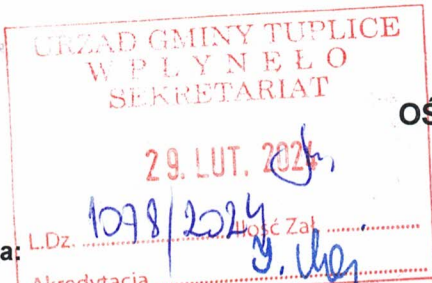 URZĄD GMINY TUPLICE
WPŁYNĘŁO
SEKRETARIAT
OŚ
29. LUT. 2024
L.Dz. 1078/2024 Ilość Zał.
a:
Akredytacja